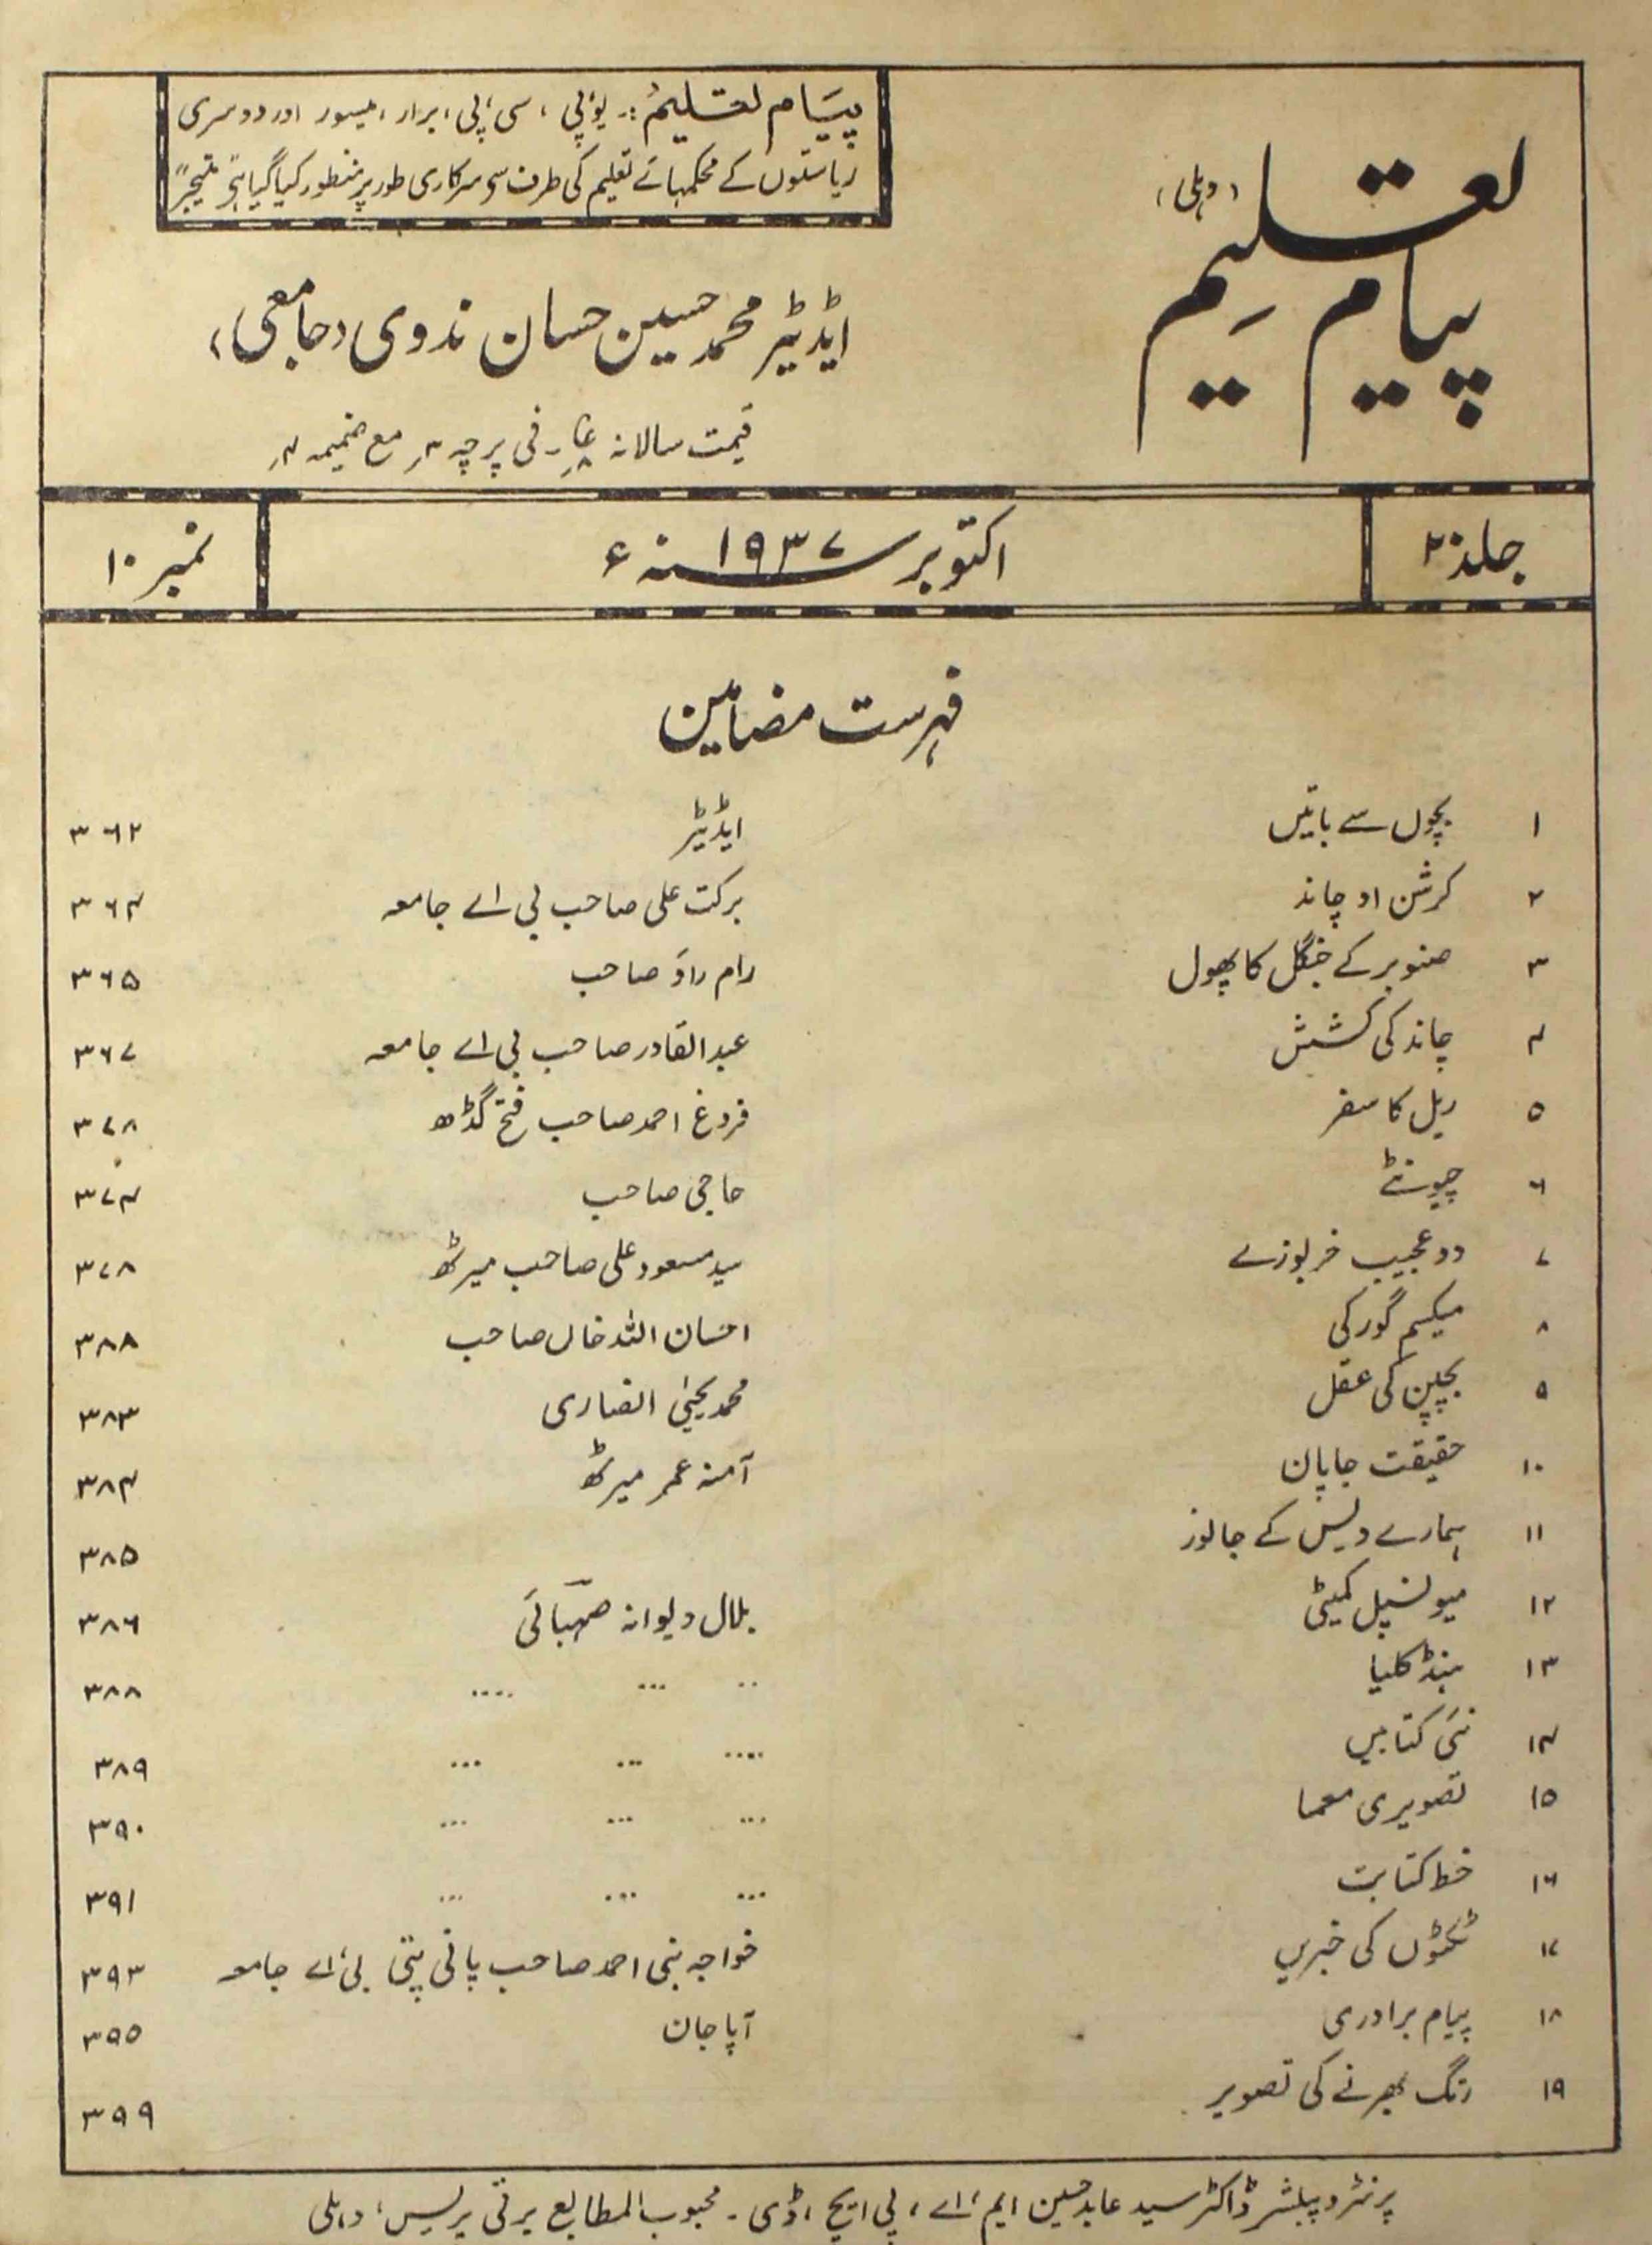 پیام تعلیم (دہلی)
پیام تعلیم :۔ یوپی ، سی پی ، برار ، میسور اور دوسری
ریاستوں کے محکمہائے تعلیم کی طرف سے سرکاری طور پر منظور کیا گیا ہے "منیجر"
ایڈیٹر محمد حسین حسان ندوی (جامعی)
قیمت سالانہ فی پرچہ ۳ر مع ضمیمہ ۴ر
جلد ۲۰
اکتوبر ۱۹۳۷ سنہ ء
نمبر ۱۰
فہرست مضامین
۱ بچوں سے باتیں ایڈیٹر ۳۶۲
۲ کرشن او چاند برکت علی صاحب بی اے جامعہ ۳۶۴
۳ صنوبر کے جنگل کا پھول رام راؤ صاحب ۳۶۵
۴ چاند کی کشش عبدالقادر صاحب بی اے جامعہ ۳۶۷
۵ ریل کا سفر فروغ احمد صاحب فتح گڈھ ۳۷۸
۶ چیونٹے حاجی صاحب ۳۷۴
۷ دو عجیب خربوزے سید مسعود علی صاحب میرٹھ ۳۷۸
۸ میکسم گورکی احسان اللہ خاں صاحب ۳۸۸
۹ بچپن کی عقل محمد یحییٰ انصاری ۳۸۳
۱۰ حقیقت جاپان آمنہ عمر میرٹھ ۳۸۴
۱۱ ہمارے دیس کے جانور ۳۸۵
۱۲ میونسپل کمیٹی بلال دیوانہ صہبائی ۳۸۶
۱۳ ہنڈ کلیا .. ... .... ۳۸۸
۱۴ نئی کتابیں .... ... ... ۳۸۹
۱۵ تصویری معما ... ... ... ۳۹۰
۱۶ خط کتابت ... ... ... ۳۹۱
۱۷ ٹکٹوں کی خبریں خواجہ نبی احمد صاحب پانی پتی بی اے جامعہ ۳۹۳
۱۸ پیام برادری آپا جان ۳۹۵
۱۹ رنگ بھرنے کی تصویر ۳۹۹
پرنٹر و پبلشر ڈاکٹر سید عابد حسین ایم ، اے ، پی ایچ ، ڈی ۔ محبوب المطابع برقی پریس ، دہلی